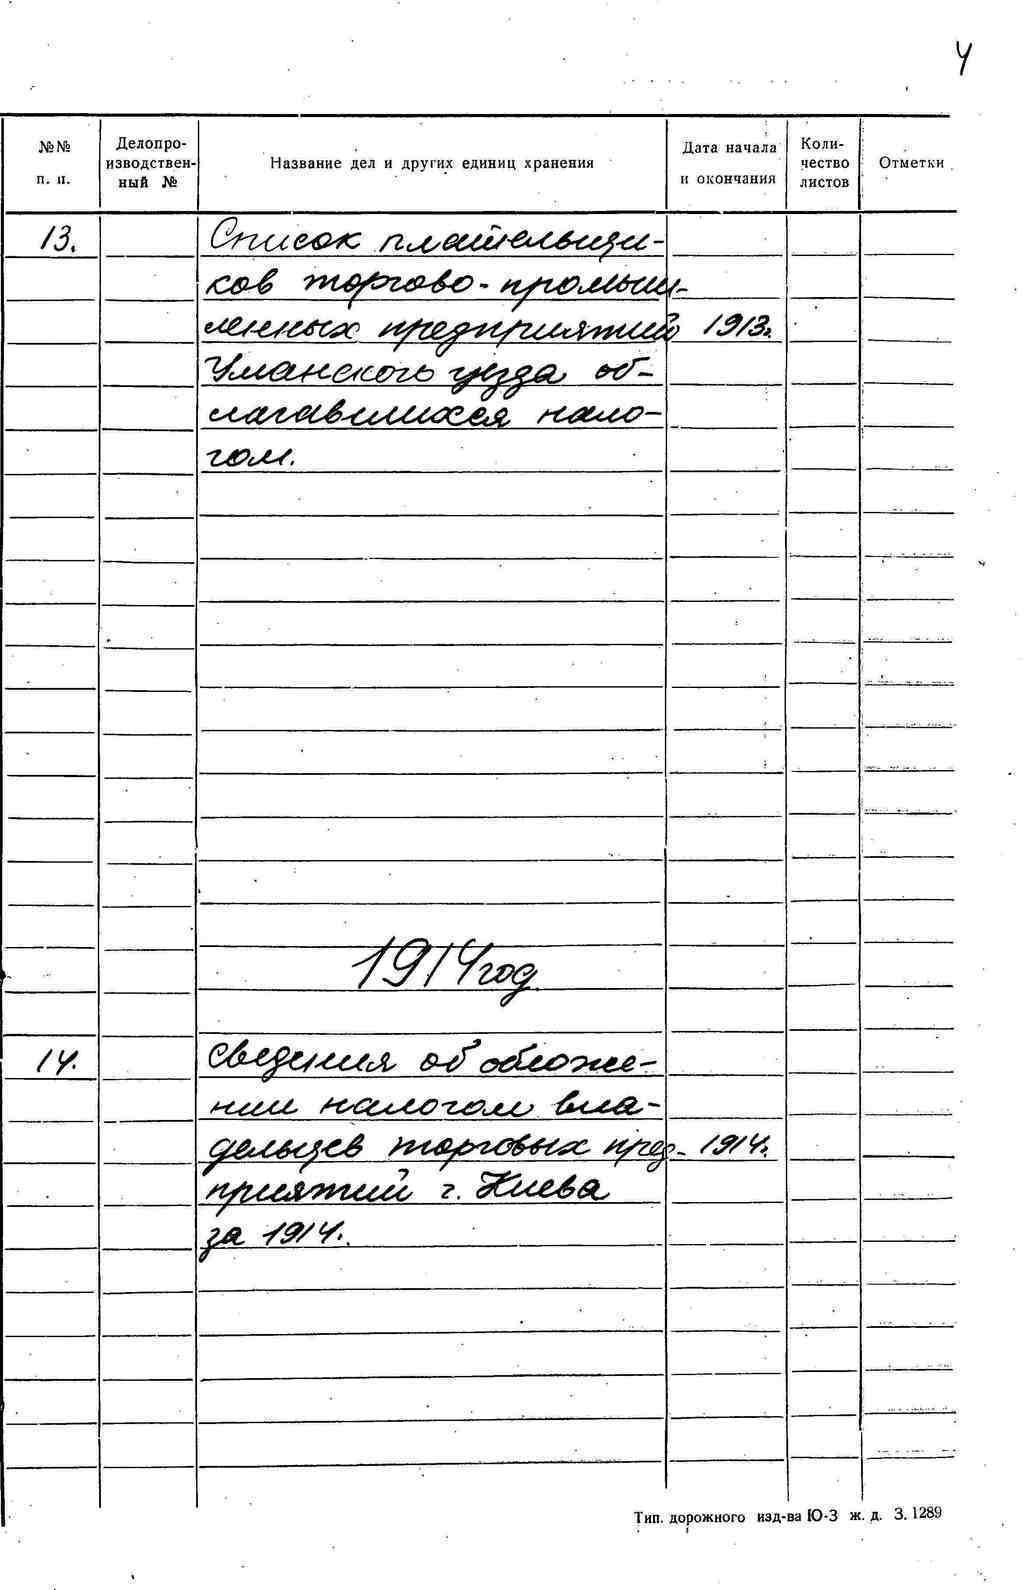 4
№№ п. п.
Делопро-
изводствен-
ный №
Название дел и других единиц хранения
Дата начала
и окончания
Коли-
чество
листов
Отметки
13.
Список плательщи-
ков торгово-промыш-
ленных предприятий 1913г.
Уманского уезда об-
лагавшихся нало-
гом.
1914 год
14.
Сведения об обложе-
нии налогом вла-
дельцев торговых пред- 1914г.
приятий г. Киева
за 1914г.
Тип. дорожного изд-ва Ю-З ж. д. З. 1289